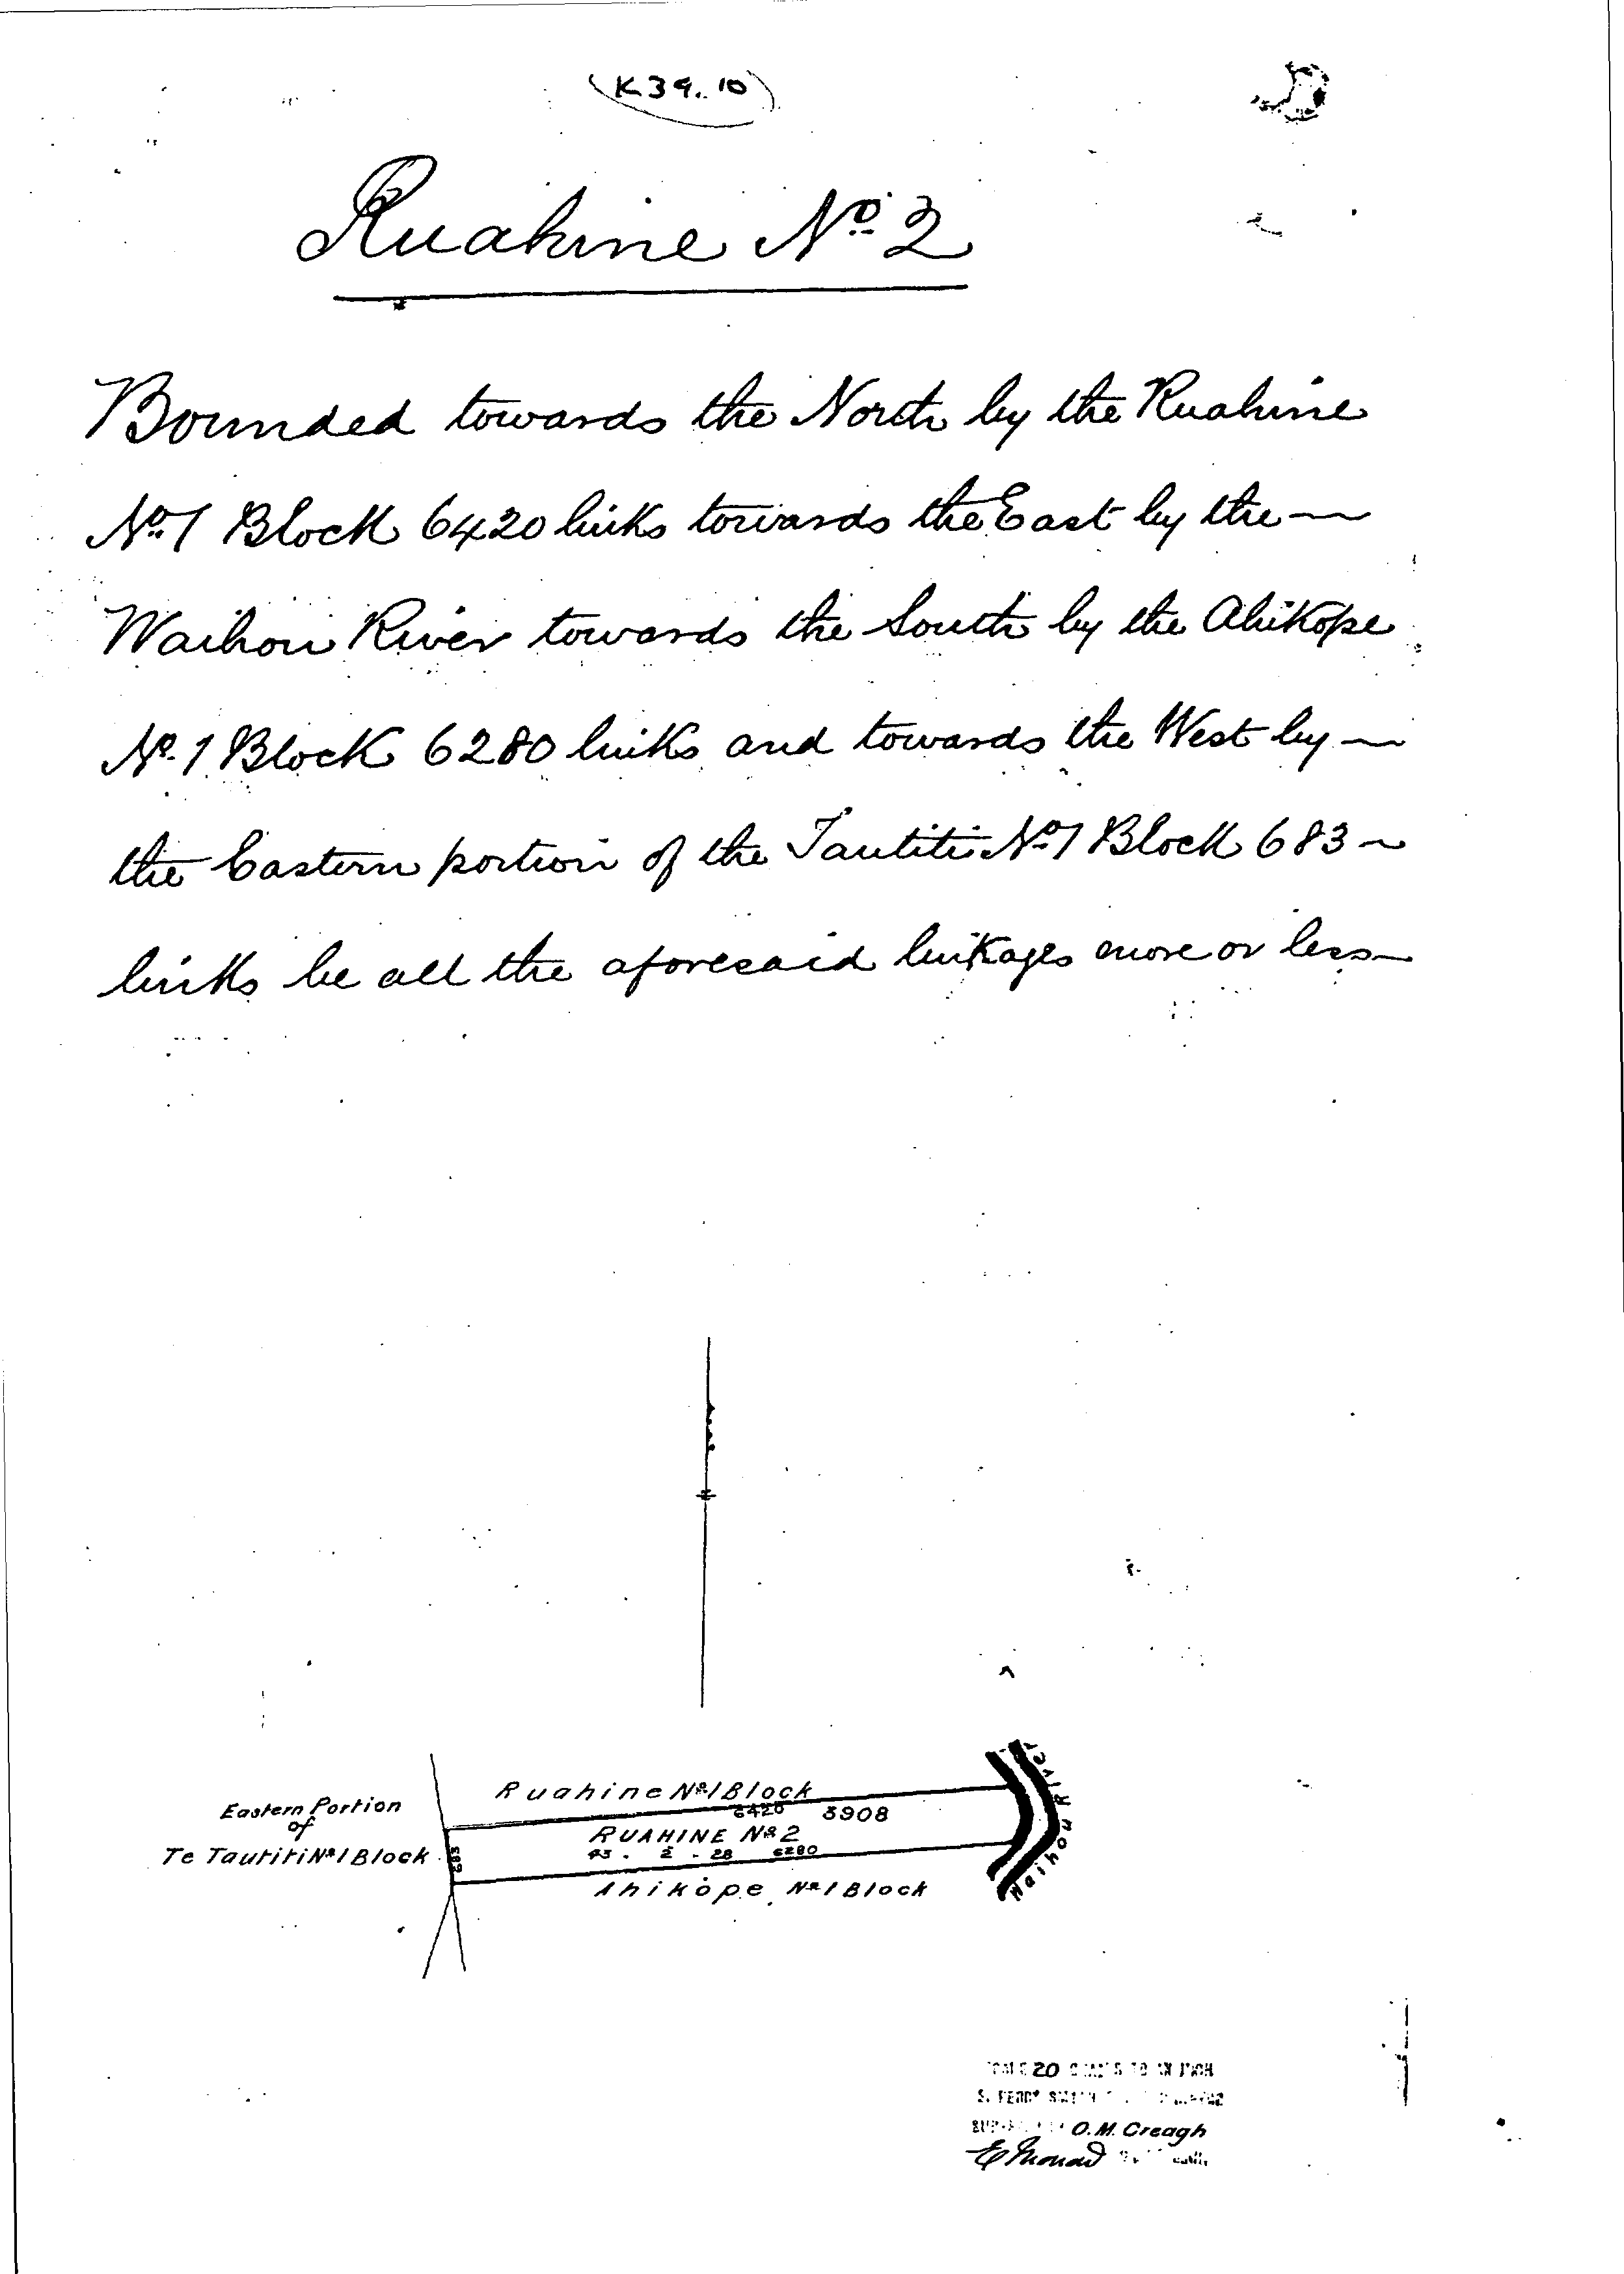 (K39.10)
Ruahine No. 2
Bounded towards the North by the Ruahine
No. 1 Block 6420 links towards the East by the
Waihou River towards the South by the Ahikope
No. 1 Block 6280 links and towards the West by
the Eastern portion of the Tautiti No. 1 Block 683
links be all the aforesaid linkages more or less
Ruahine No. 1 Block
6420 3908
Eastern Portion
of
Te Tautiti No. 1 Block
683
RUAHINE No. 2
2 - 28 6280
Ahikope No. 1 Block
Waihou River
20
S. PERCY SMITH
O.M. Creagh